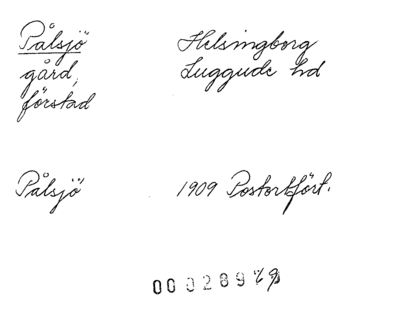 Pålsjö Helsingborg
gård, Luggude hd
förstad
Pålsjö 1909 Postortfört.
000289